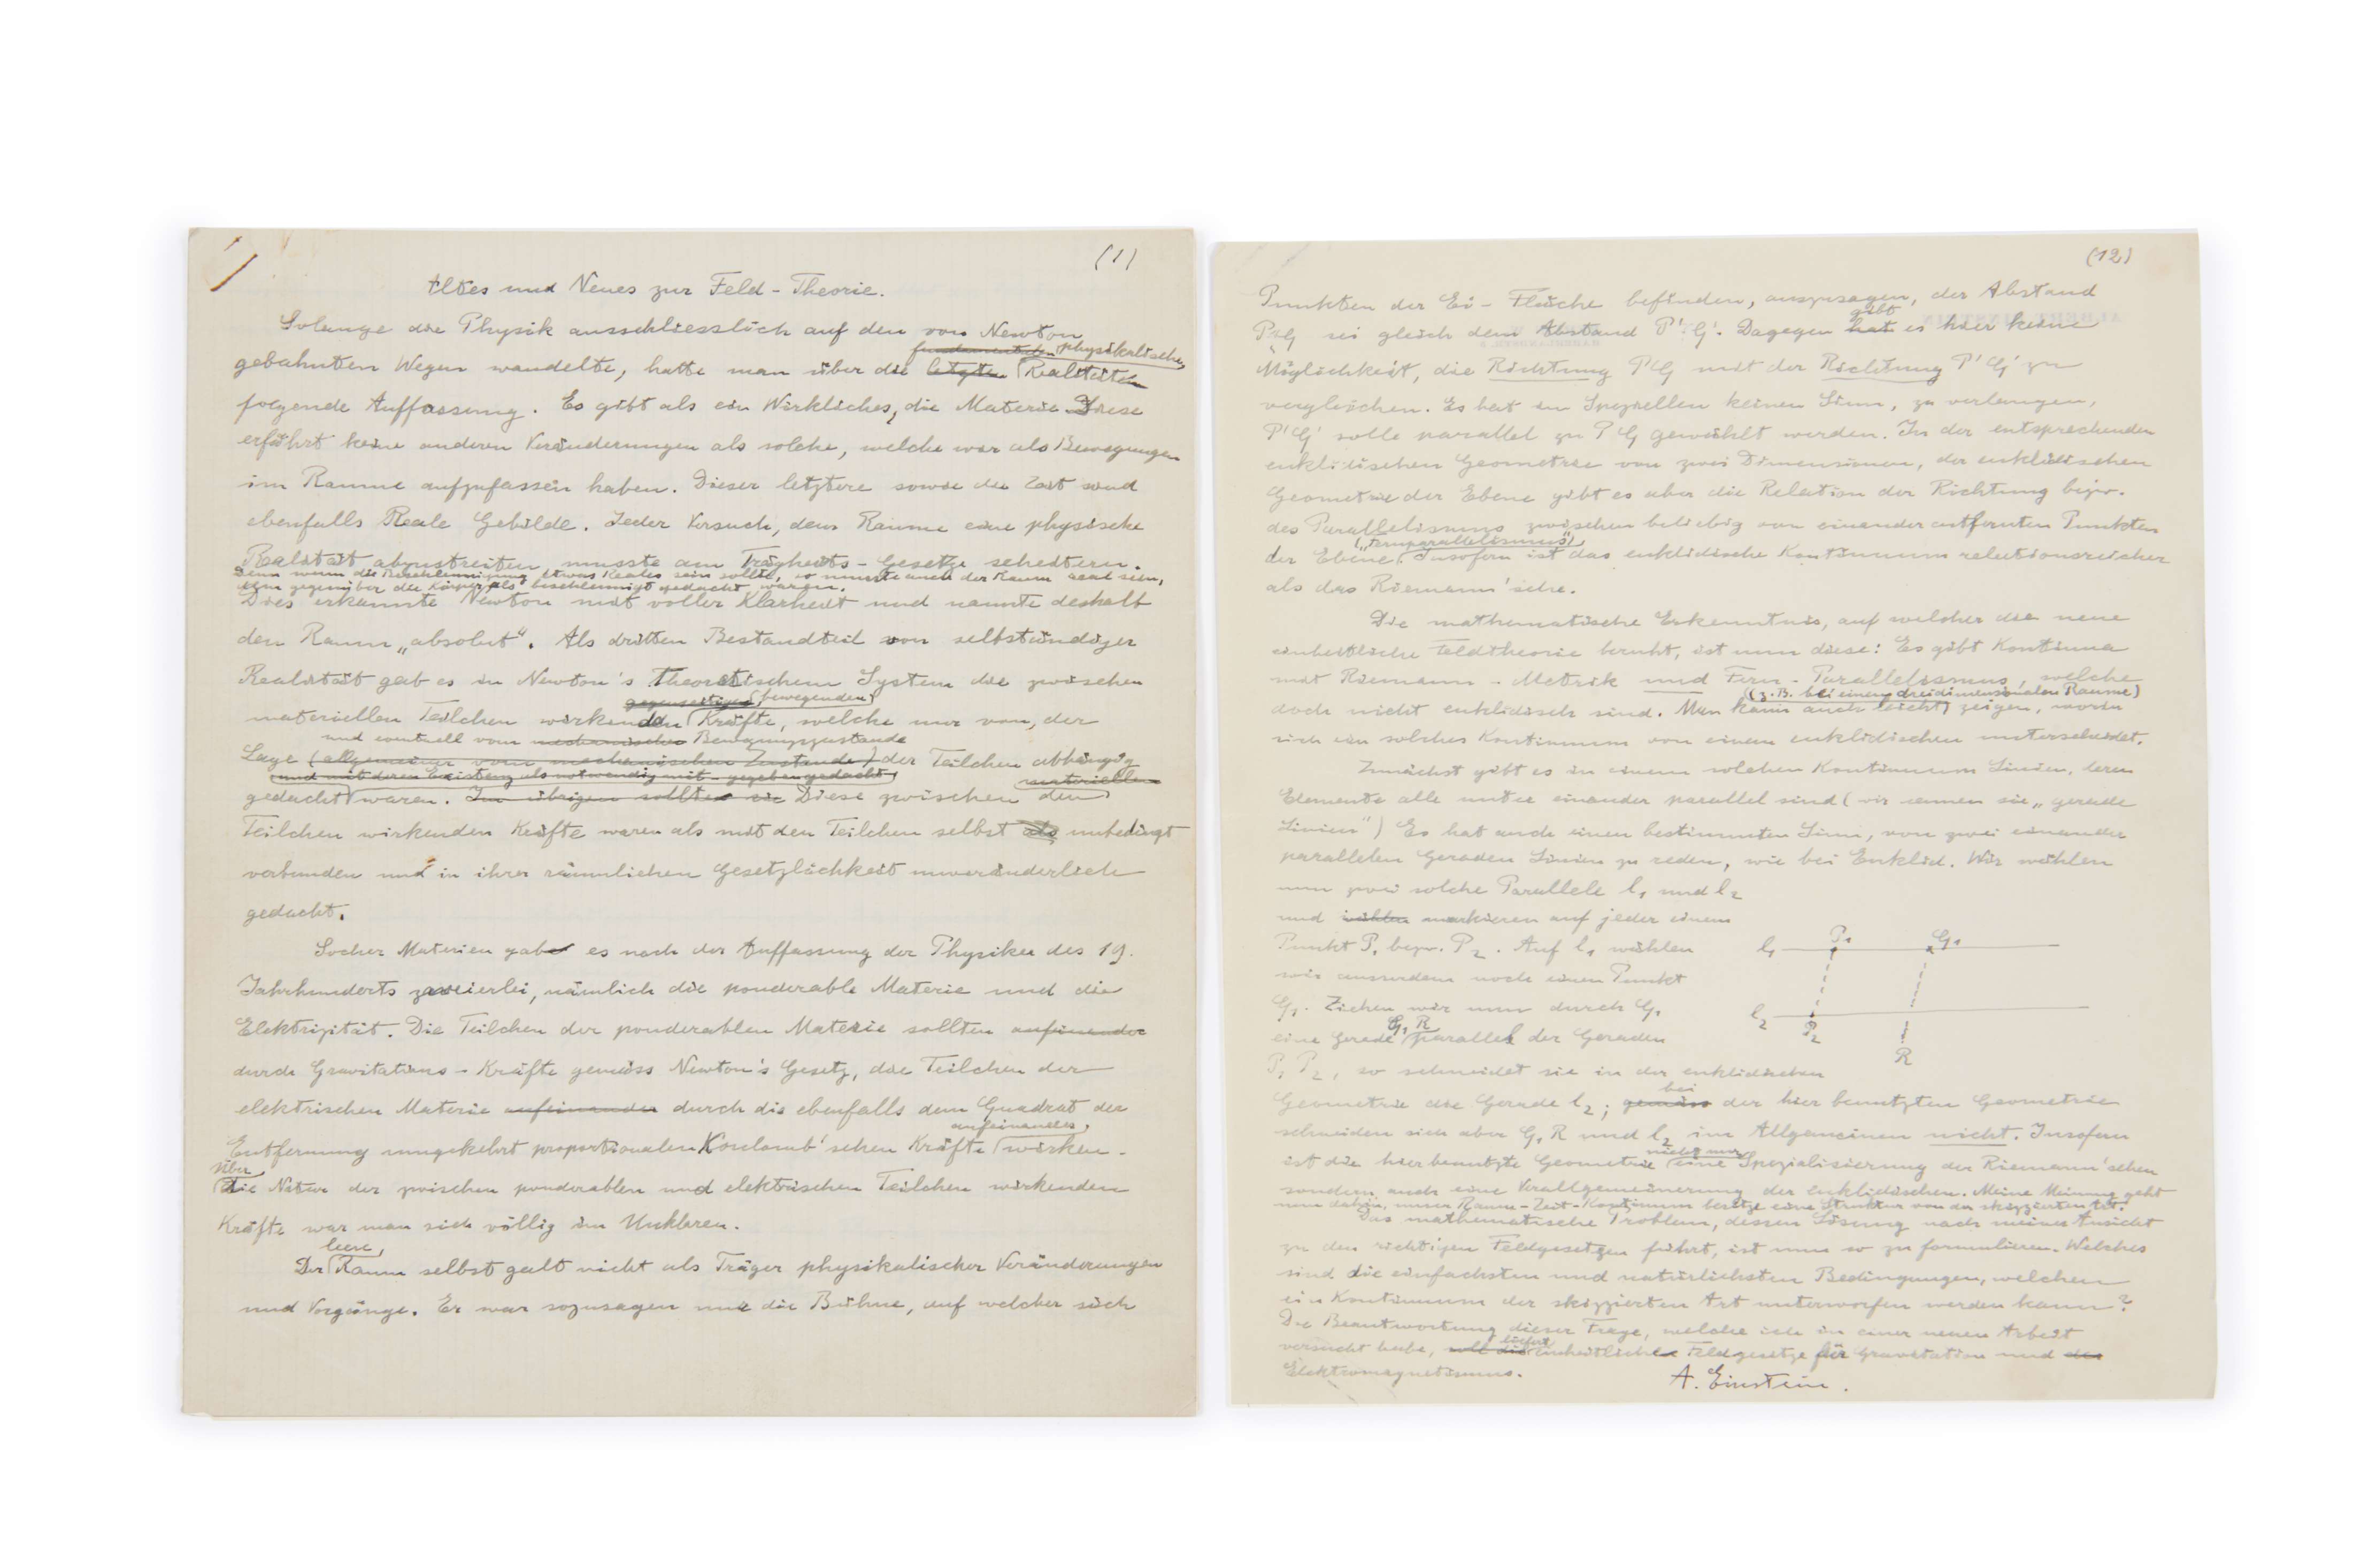 (1)
Altes und Neues zur Feld-Theorie.
Solange die Physik ausschliesslich auf den von Newton
fundamentalen physikalischen
gebahnten Wegen wandelte, hatte man über die letzten Realitäten
folgende Auffassung. Es gibt als ein Wirkliches, die Materie. Diese
erfährt keine anderen Veränderungen als solche, welche wir als Bewegungen
im Raume aufzufassen haben. Dieser letztere sowie die Zeit sind
ebenfalls Reale Gebilde. Jeder Versuch, dem Raume eine physische
Realität abzustreiten, musste am Trägheits-Gesetze scheitern.
Denn wenn die Beschleunigung etwas Reales sein sollte, so musste auch der Raum real sein,
dem gegenüber die Körper als beschleunigt gedacht waren.
Dies erkannte Newton mit voller Klarheit und nannte deshalb
den Raum „absolut“. Als dritten Bestandteil von selbständiger
Realität gab es in Newton's Theoretischem System die zwischen
gegenseitigen bewegenden
materiellen Teilchen wirkenden Kräfte, welche nur von der
und eventuell vom mechanischen Bewegungszustande
Lage (allgemeiner vom mechanischen Zustande) der Teilchen abhängig
und mit deren Existenz als notwendig mit-gegeben gedacht
materiellen
gedacht waren. Im übrigen sollten sie Diese zwischen den
Teilchen wirkenden Kräfte waren als mit den Teilchen selbst als unbedingt
verbunden und in ihrer räumlichen Gesetzlichkeit unveränderlich
gedacht.
Socher Materien gab es nach der Auffassung der Physiker des 19.
Jahrhunderts zweierlei, nämlich die ponderable Materie und die
Elektrizität. Die Teilchen der ponderablen Materie sollten aufeinander
durch Gravitations-Kräfte gemäss Newton's Gesetz, die Teilchen der
elektrischen Materie aufeinander durch die ebenfalls dem Quadrat der
aufeinander
Entfernung umgekehrt proportionalen Koulomb'schen Kräfte wirken.
Über
die Natur der zwischen ponderablen und elektrischen Teilchen wirkenden
Kräfte war man sich völlig im Unklaren.
leere
Der Raum selbst galt nicht als Träger physikalischer Veränderungen
und Vorgänge. Er war sozusagen nur die Bühne, auf welcher sich
(12)
Punkten der Ei-Fläche befinden, auszusagen, der Abstand
gibt
PG sei gleich dem Abstand P'G'. Dagegen hat es hier keine
Möglichkeit, die Richtung PG mit der Richtung P'G' zu
vergleichen. Es hat im Speziellen keinen Sinn, zu verlangen,
P'G' solle parallel zu PG gewählt werden. In der entsprechenden
euklidischen Geometrie von zwei Dimensionen, der euklidischen
Geometrie der Ebene gibt es aber die Relation der Richtung bezw.
des Parallelismus zwischen beliebig von einander entfernten Punkten
(„Fernparallelismus“)
der Ebene. Insofern ist das euklidische Kontinuum relationsreicher
als das Riemann'sche.
Die mathematische Erkenntnis, auf welcher die neue
einheitliche Feldtheorie beruht, ist nun diese: Es gibt Kontinua
mit Riemann-Metrik und Fern-Parallelismus, welche
(z.B. bei einem dreidimensionalen Raume)
doch nicht euklidisch sind. Man kann auch leicht zeigen, worin
sich ein solches Kontinuum von einem euklidischen unterscheidet.
Zunächst gibt es in einem solchen Kontinuum Linien, deren
Elemente alle unter einander parallel sind (wir nennen sie „gerade
Linien“) Es hat auch einen bestimmten Sinn, von zwei einander
parallelen Geraden Linien zu reden, wie bei Euklid. Wir wählen
nun zwei solche Parallele l₁ und l₂
und wählen markieren auf jeder einem
Punkt P₁ bezw. P₂. Auf l₁ wählen
wir ausserdem noch einen Punkt
G₁. Ziehen wir nun durch G₁
G₁ R
eine Gerade parallel der Geraden
P₁ P₂, so schneidet sie in der euklidischen
l₁ P₁ G₁
l₂ P₂
R
bei
Geometrie die Gerade l₂; gemäss der hier benutzten Geometrie
schneiden sich aber G₁ R und l₂ im Allgemeinen nicht. Insofern
nicht nur
ist die hier benutzte Geometrie eine Spezialisierung der Riemann'schen
sondern auch eine Verallgemeinerung der euklidischen. Meine Meinung geht
nun dahin, unser Raum-Zeit-Kontinuum besitze eine Struktur von der skizzierten Art.
Das mathematische Problem, dessen Lösung nach meiner Ansicht
zu den richtigen Feldgesetzen führt, ist nun so zu formulieren. Welches
sind die einfachsten und natürlichsten Bedingungen, welchen
ein Kontinuum der skizzierten Art unterworfen werden kann?
Die Beantwortung dieser Frage, welche ich in einer neuen Arbeit
liefert
versucht habe, soll die einheitliche Feldgesetze für Gravitation und den
Elektromagnetismus.
A. Einstein.